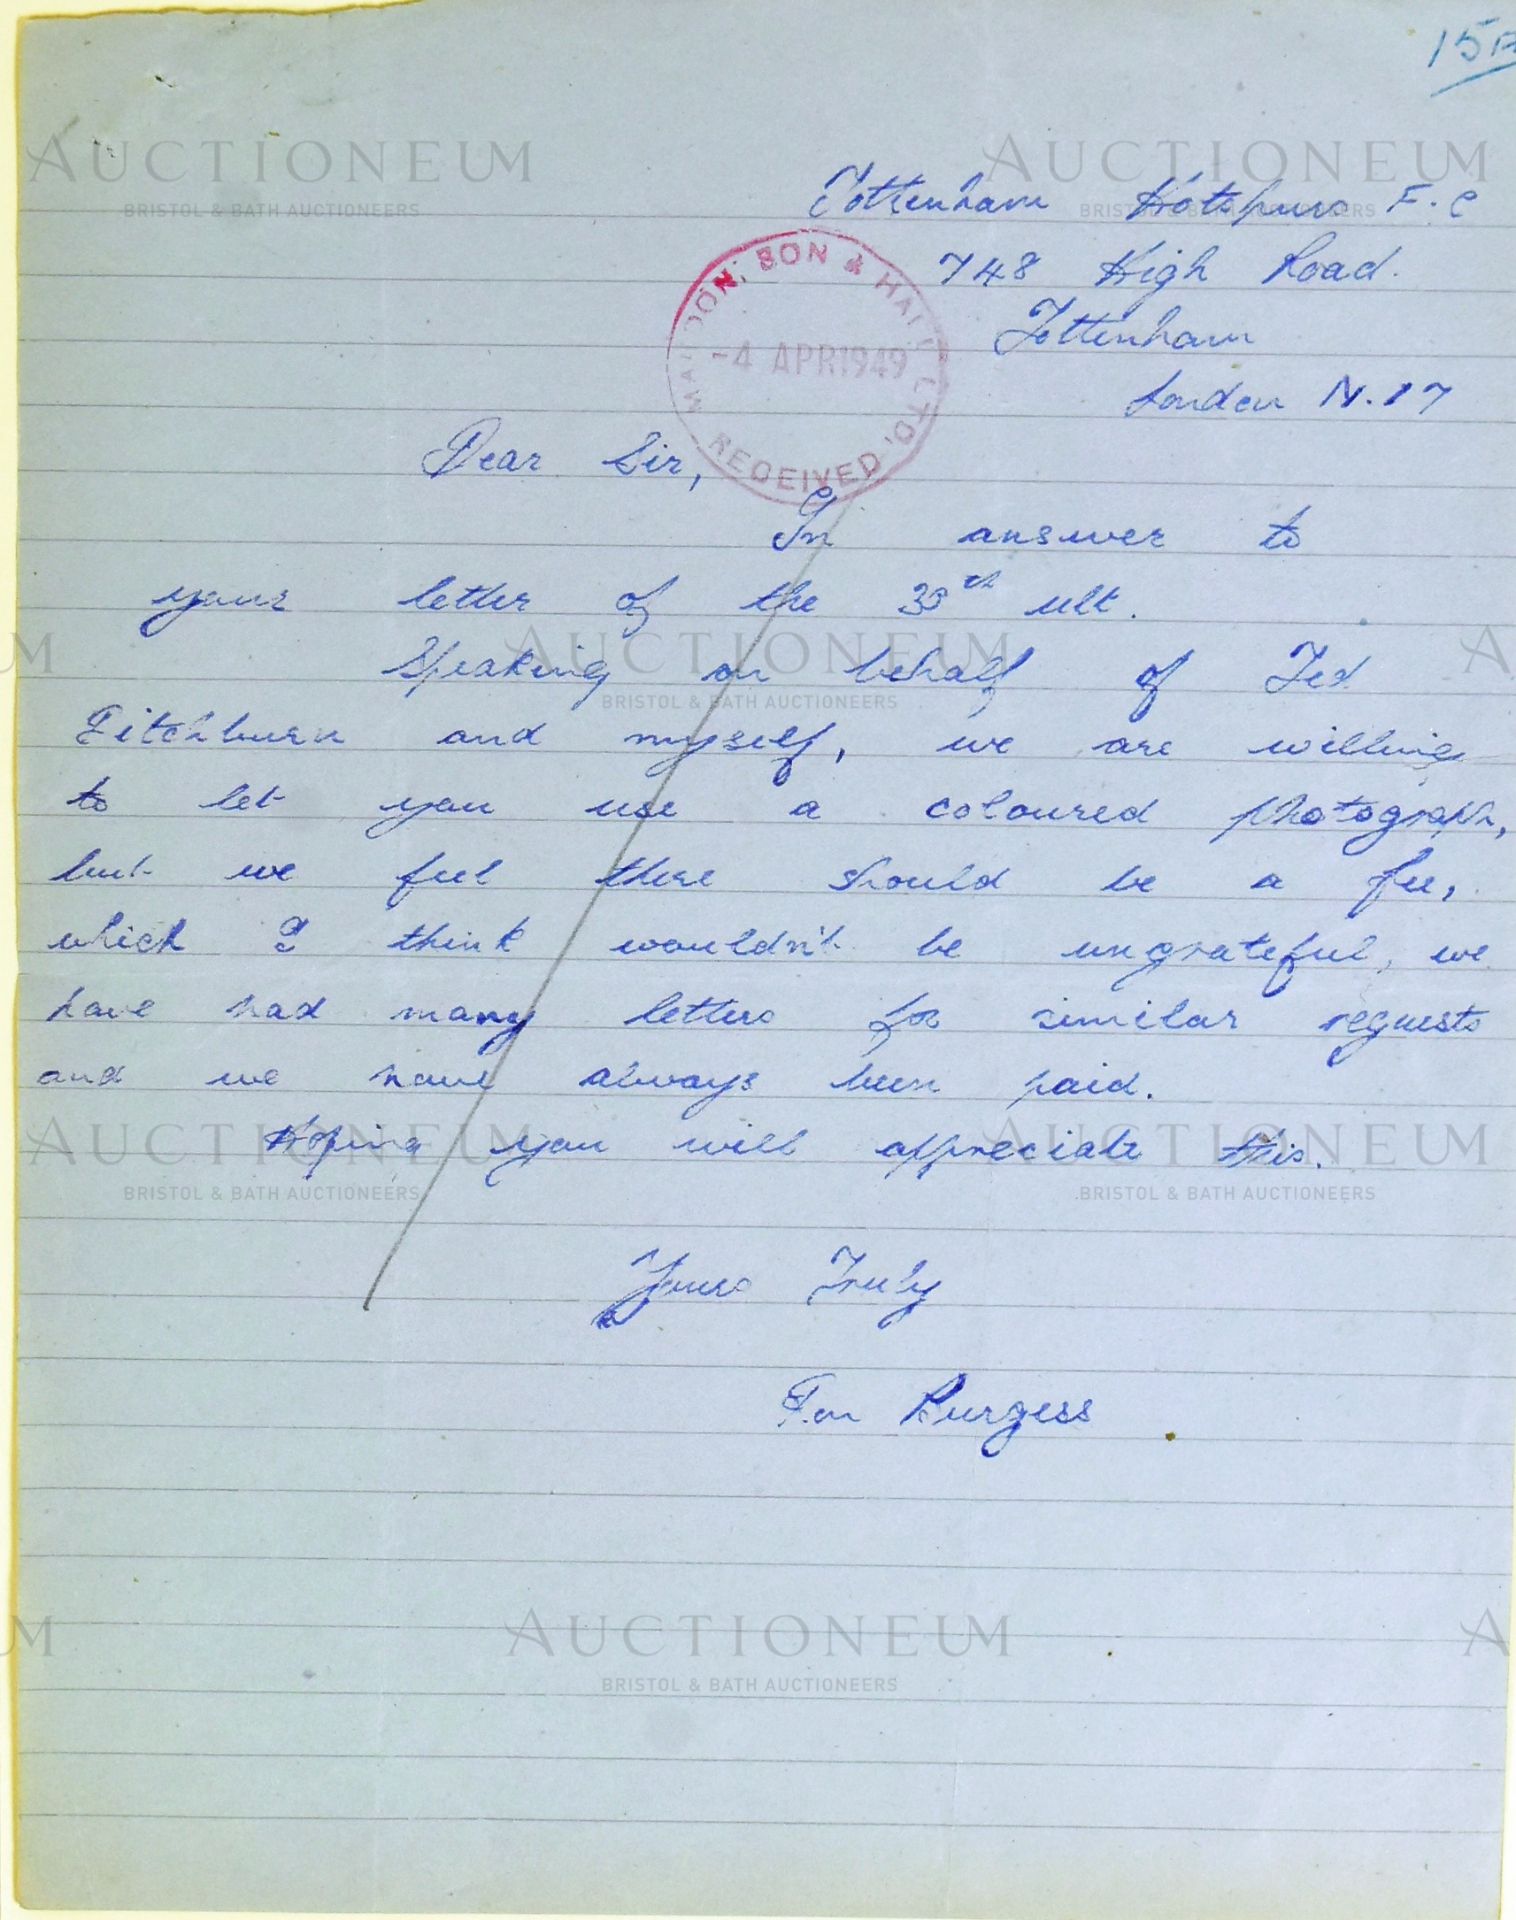 15A
Tottenham Hotspurs F.C
748 High Road.
Tottenham
London N.17
MARDON, SON & HALL LTD.
-4 APR 1949
RECEIVED
Dear Sir,
In answer to
your letter of the 30th ult.
Speaking on behalf of Ted
Ditchburn and myself, we are willing
to let you use a coloured photograph,
but we feel there should be a fee,
which I think wouldn't be ungrateful, we
have had many letters for similar requests
and we have always been paid.
Hoping you will appreciate this.
Yours Truly
Ron Burgess
AUCTIONEUM
BRISTOL & BATH AUCTIONEERS
AUCTIONEUM
BRISTOL & BATH AUCTIONEERS
AUCTIONEUM
BRISTOL & BATH AUCTIONEERS
AUCTIONEUM
BRISTOL & BATH AUCTIONEERS
AUCTIONEUM
BRISTOL & BATH AUCTIONEERS
AUCTIONEUM
BRISTOL & BATH AUCTIONEERS